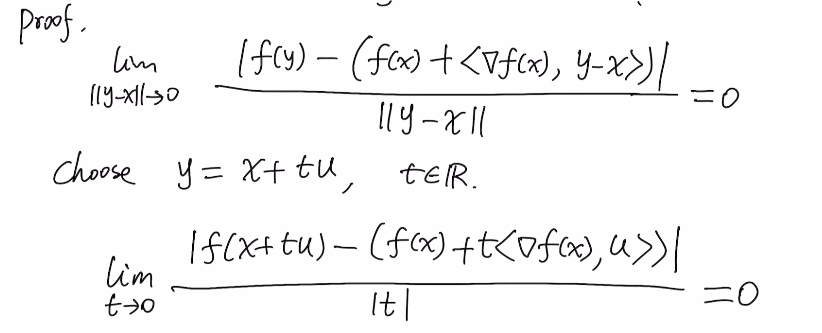 Proof.
lim_{||y-x||→0} |f(y) - (f(x) + <∇f(x), y-x>)| / ||y-x|| = 0
Choose y = x + tu, t∈ℝ.
lim_{t→0} |f(x+tu) - (f(x) + t<∇f(x), u>)| / |t| = 0